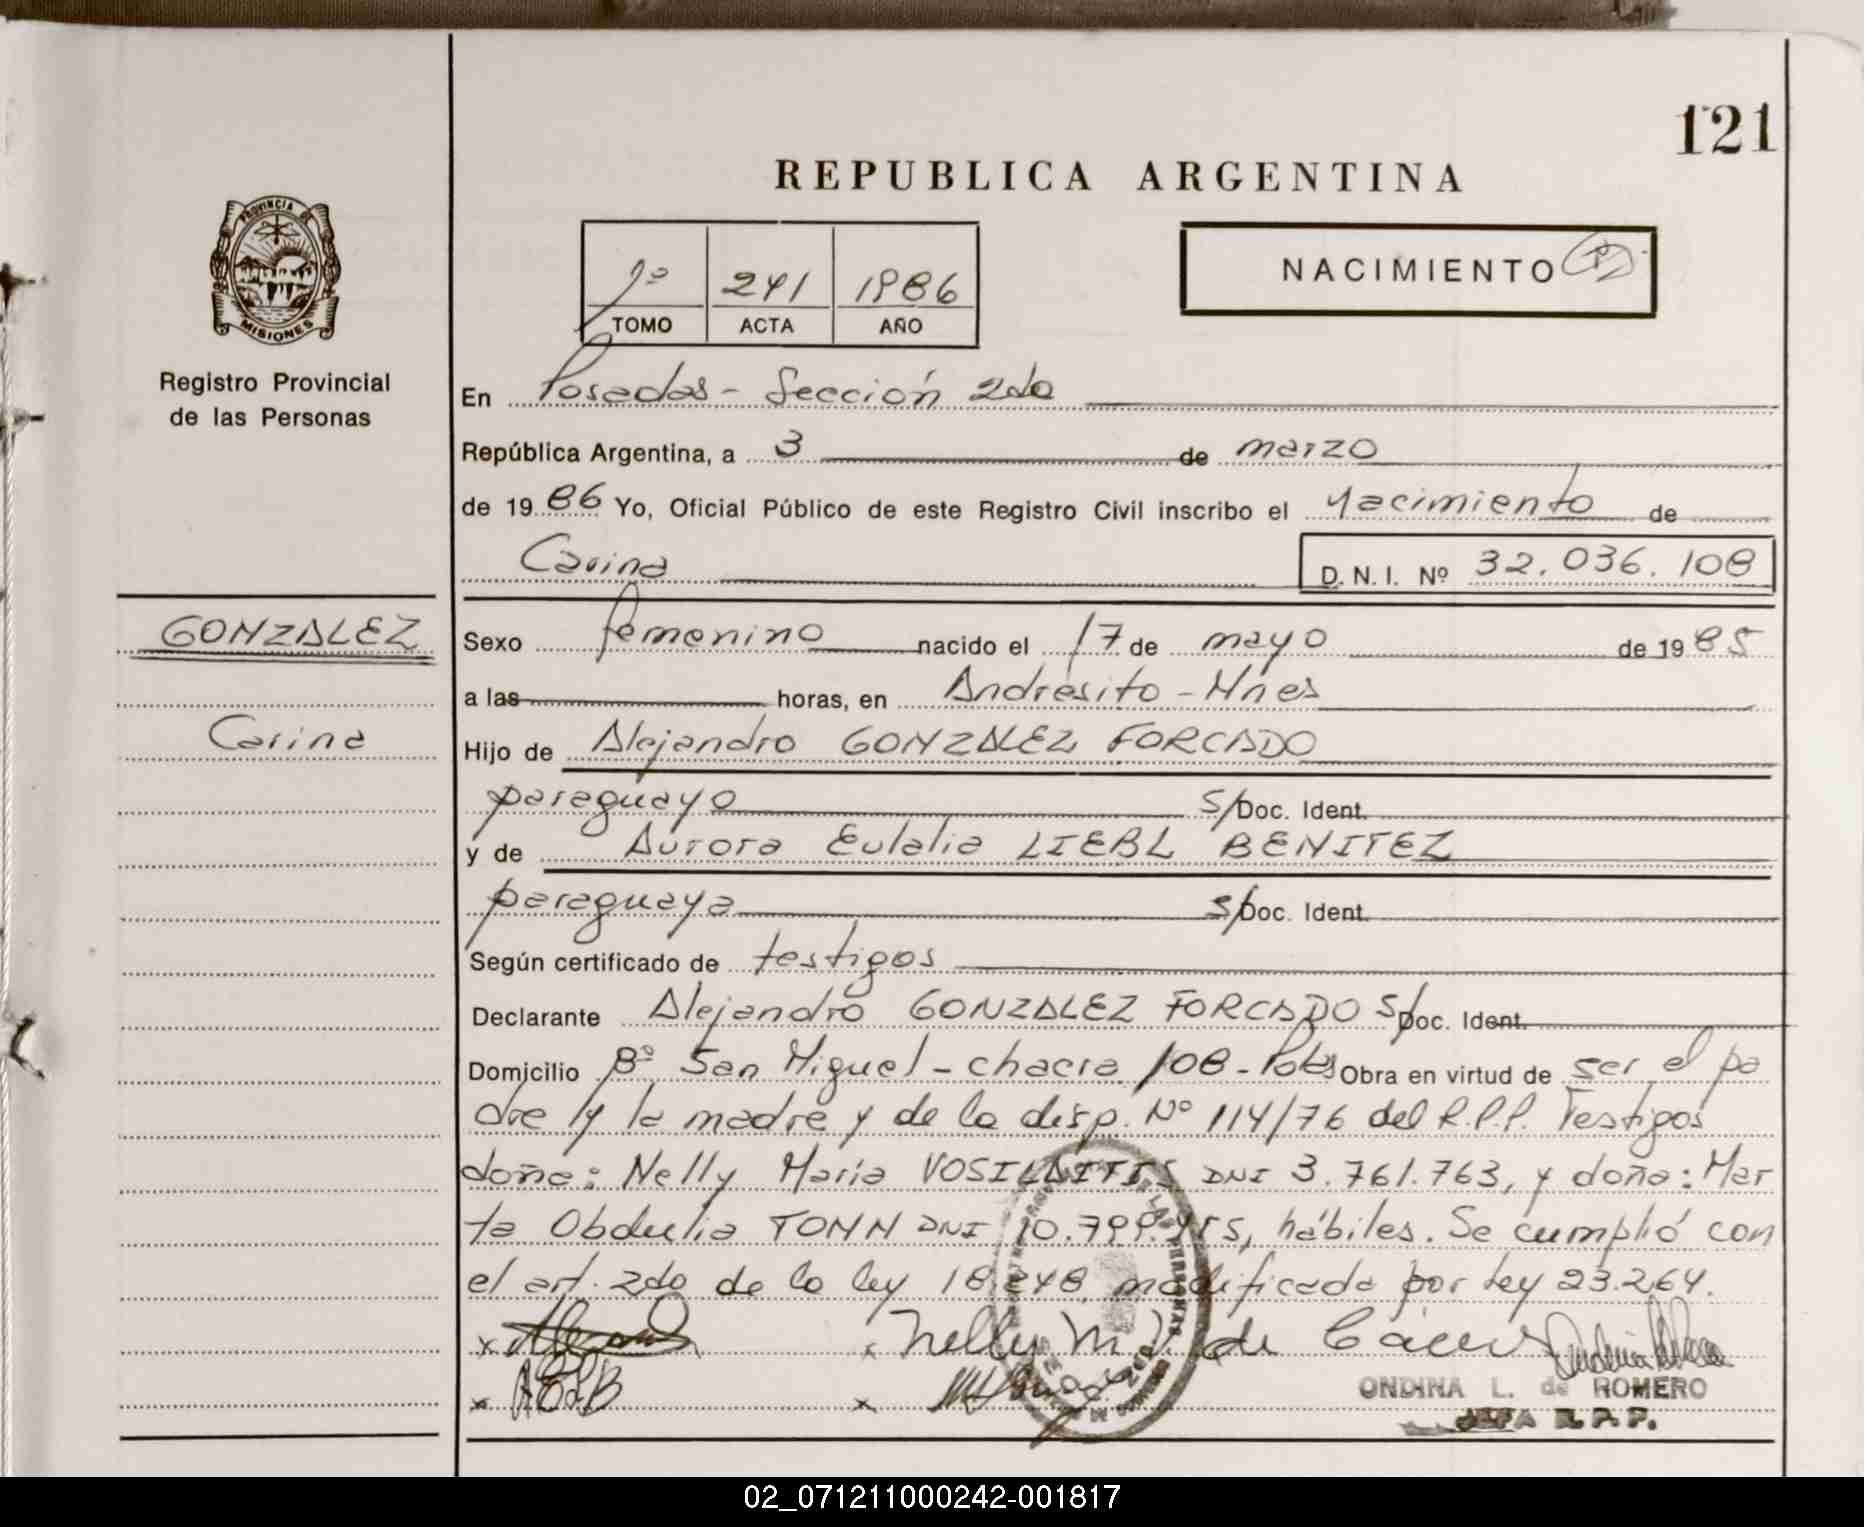 121
REPUBLICA ARGENTINA
PROVINCIA DE
MISIONES
Registro Provincial
de las Personas
1º 241 1986
TOMO ACTA AÑO
NACIMIENTO
En Posadas - Sección 2da
República Argentina, a 3 de marzo
de 1986 Yo, Oficial Público de este Registro Civil inscribo el Nacimiento de
Carina D. N. I. Nº 32.036.108
GONZALEZ
Carina
Sexo femenino nacido el 17 de mayo de 1985
a las horas, en Andresito - Mnes
Hijo de Alejandro GONZALEZ FORCADO
paraguayo S/Doc. Ident.
y de Aurora Eulalia LIEBL BENITEZ
paraguaya S/Doc. Ident.
Según certificado de testigos
Declarante Alejandro GONZALEZ FORCADO S/Doc. Ident.
Domicilio Bº San Miguel - chacra 108 - Obra en virtud de ser el pa
dre y la madre y de la disp. Nº 114/76 del R.P.P. Testigos
doña: Nelly María DNI 3.761.763, y doña: Mar
ta Obdulia TOMM DNI hábiles. Se cumplió con
el art. 2do de la ley 18.248, modificada por ley 23.264.
x x Nelly M. V. de
x A E L B x
ONDINA L. de ROMERO
JEFA R.P.P.
02_071211000242-001817